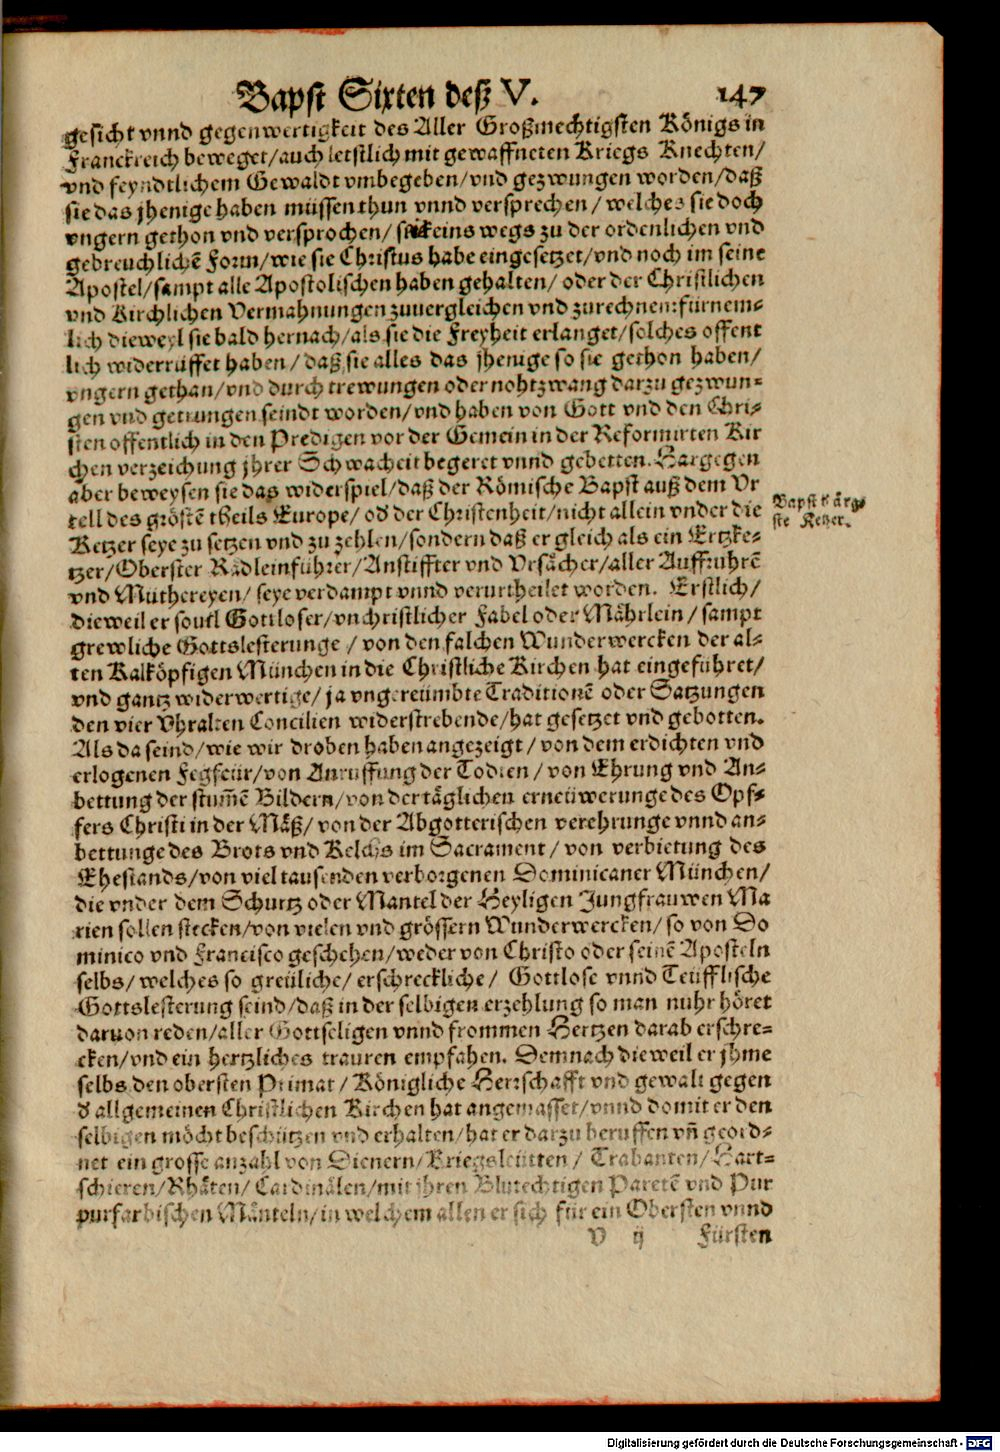 Bapst Sixten deß V. 147
gesicht vnnd gegenwertigkeit des Aller Großmechtigsten Königs in
Franckreich beweget/auch letstlich mit gewaffneten Kriegs Knechten/
vnd feyndtlichem Gewaldt vmbegeben/vnd gezwungen worden/daß
sie das jhenige haben müssen thun vnnd versprechen/welches sie doch
vngern gethon vnd versprochen/ keins wegs zu der ordenlichen vnd
gebreuchlichē Form/wie sie Christus habe eingesetzet/vnd noch im seine
Apostel/sampt alle Apostolischen haben gehalten/oder der Christlichen
vnd Kirchlichen Vermahnungen zuuergleichen vnd zurechnen:fürnem-
lich dieweyl sie bald hernach/als sie die Freyheit erlanget/solches offent
lich widerrüffet haben/daß sie alles das jhenige so sie gethon haben/
vngern gethan/vnd durch trewungen oder nohtzwang darzu gezwun-
gen vnd getrungen seindt worden/vnd haben von Gott vnd den Chri-
sten offentlich in den Predigen vor der Gemein in der Reformirten Kir
chen verzeichung jhrer Schwacheit begeret vnnd gebetten. Hargegen
aber beweysen sie das widerspiel/daß der Römische Bapst auß dem Vr
tell des gröstē theils Europe/ oď der Christenheit/nicht allein vnder die
Ketzer seye zu setzen vnd zu zehlen/sondern daß er gleich als ein Ertzke-
tzer/Oberster Rädleinführer/Anstiffter vnd Vrsächer/aller Auffruhrē
vnd Müthereyen/ seye verdampt vnnd verurtheilet worden. Erstlich/
dieweil er souil Gottloser/vnchristlicher Fabel oder Mährlein/ sampt
grewliche Gottslesterunge / von den falchen Wunderwercken der al-
ten Kalköpfigen München in die Christliche Kirchen hat eingeführet/
vnd gantz widerwertige/ ja vngereümbte Traditionē oder Satzungen
den vier Vhralten Concilien widerstrebende/hat gesetzet vnd gebotten.
Als da seind/wie wir droben haben angezeigt/von dem erdichten vnd
erlogenen Fegfeür/von Anruffung der Todten/von Ehrung vnd An-
bettung der stum̄ē Bildern/von der täglichen erneüwerunge des Opf-
fers Christi in der Mäß/von der Abgotterischen verehrunge vnnd an-
bettunge des Brots vnd Kelchs im Sacrament/von verbietung des
Ehestands/von viel tausenden verborgenen Dominicaner München/
die vnder dem Schurtz oder Mantel der Heyligen Jungfrauwen Ma
rien sollen stecken/von vielen vnd grössern Wunderwercken/so von Do
minico vnd Francisco geschehen/weder von Christo oder seinē Aposteln
selbs/welches so greüliche/ erschreckliche/ Gottlose vnnd Teüfflische
Gottslesterung seind/daß in der selbigen erzehlung so man nuhr höret
daruon reden/aller Gottseligen vnnd frommen Hertzen darab erschre-
cken/vnd ein hertzliches trauren empfahen. Demnach dieweil er jhme
selbs den obersten Primat/ Königliche Herrschafft vnd gewalt gegen
ď allgemeinen Christlichen Kirchen hat angemasset/vnnd domit er den
selbigen möcht beschützen vnd erhalten/hat er darzu beruffen vn̄ geord-
net ein grosse anzahl von Dienern/Kriegsleütten / Trabanten/Hart-
schieren/Rhäten/ Cardinälen/mit jhren Blutechtigen Paretē vnd Pur
purfarbischen Mänteln/in welchem allen er sich für ein Obersten vnnd
V ij Fürsten
Bapst ď ärg-
ste Ketzer.
Digitalisierung gefördert durch die Deutsche Forschungsgemeinschaft - DFG